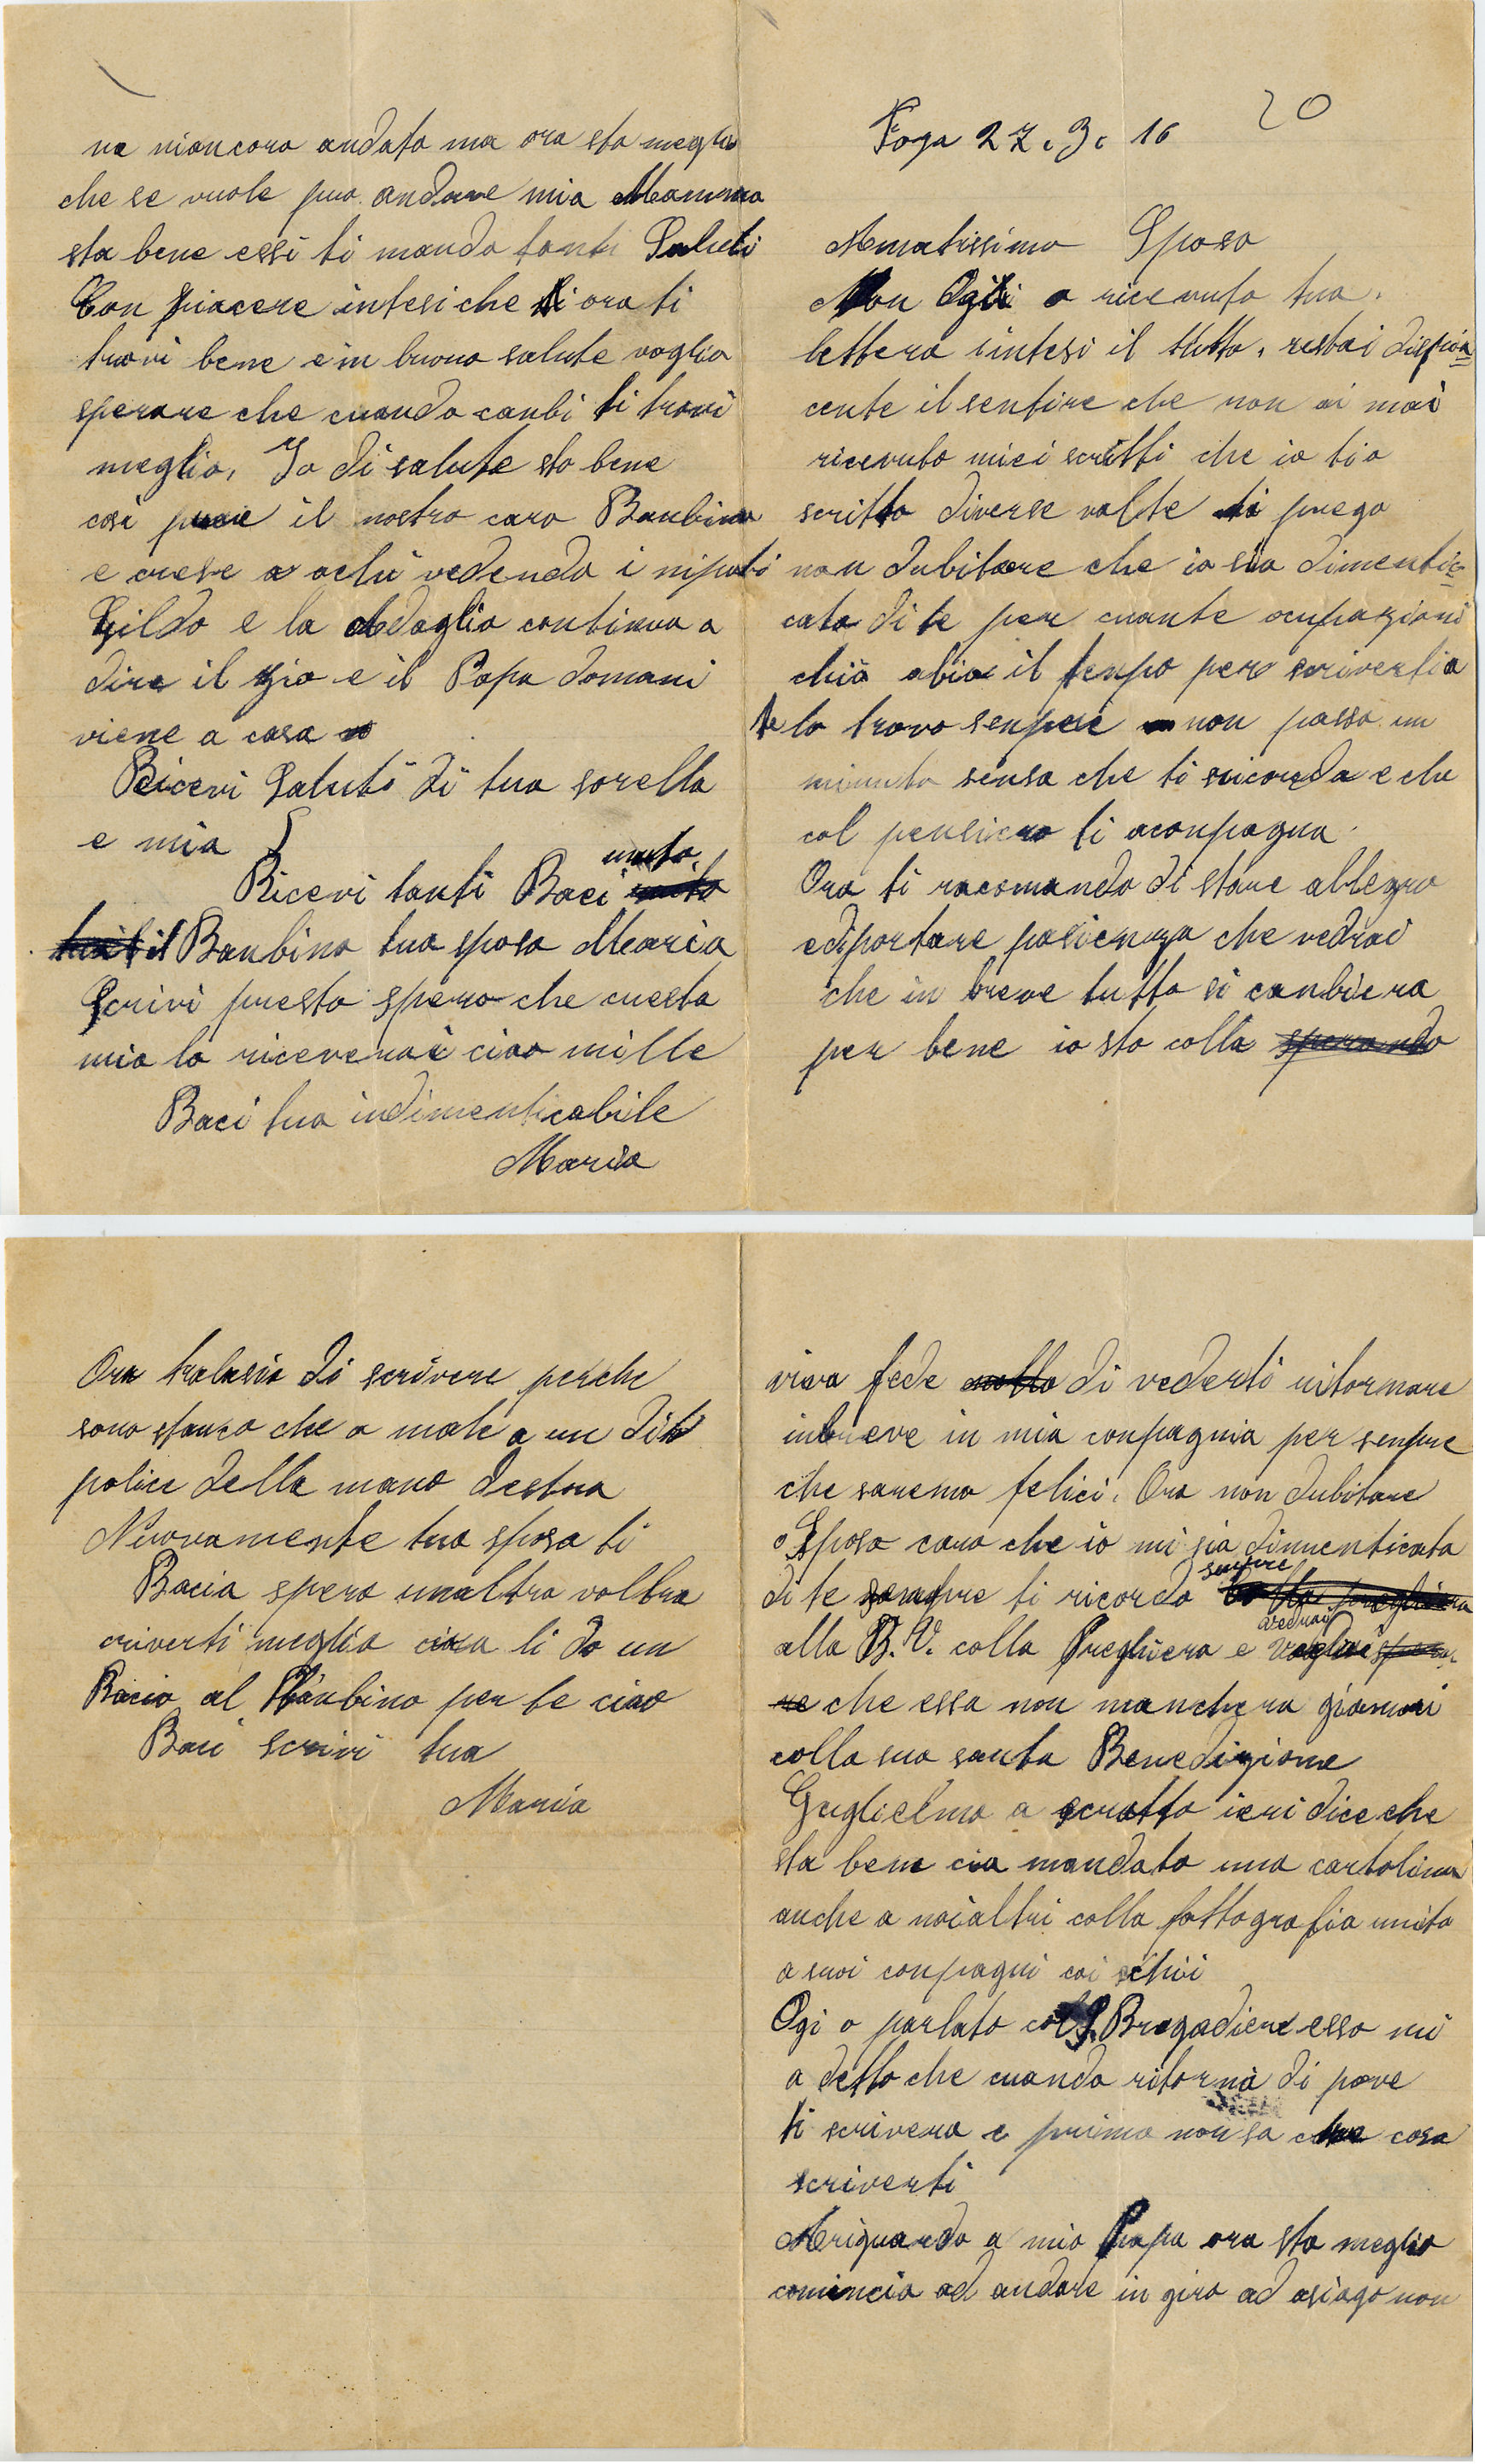 Foga 27. 3. 16
20
Amatissimo Sposo
o ricevuto tua.
lettera intesi il tutto, restai dispia=
cente il sentire che non ai mai
ricevuto miei scritti che io tio
scritto diverse volte ti prego
non dubitare che io sia dimenti=
cata di te per cuante ocupazioni
chiò abia il tenpo per scriverti a
te lo trovo senpre non passa un
minuto sensa che ti ricorda e che
col pensiero ti aconpagna.
Ora ti racomando di stare allegro
e di portare pasienza che vedrai
che in breve tutto si canbiera
per bene io sto colla sperando
viva fede di vederti ritornare
inbreve in mia conpagnia per senpre
che saremo felici. Ora non dubitare
o Sposo caro che io mi sia dimenticata
di te senpre ti ricordo senpre
alla B. V. colla Preghiera e vedrai
che essa non manchera giamai
colla sua santa Benedizione
Guglielmo a scritto ieri dice che
sta bene cia mandato una cartolina
anche a noialtri colla fottografia unito
a suoi conpagni coi schii
Ogi o parlato col S. Bregadiere esso mi
a detto che cuando ritorna di pove
ti scrivera e prima non sa che cosa
scriverti
Ariguardo a mio Papa ora sta meglio
comincia ad andare in giro ad asiago non
ne niancora andato ma ora sta meglio
che se vuole puo andare mia Mamma
sta bene essi ti manda tanti Saluti
Con piacere intesi che di ora ti
trovi bene e in buona salute voglio
sperare che cuando canbi ti trovi
meglio, Io di salute sto bene
cosi pure il nostro caro Banbino
e crese a ochi vedendo i niputi
Gildo e la Adaglia continua a
dire il zio e il Papa domani
viene a casa
Ricevi Saluti di tua sorella
e mia
Ricevi tanti Baci unito
il Banbino tua sposa Maria
Scrivi presto spero che cuesta
mia la riceverai ciao mille
Baci tua indimenticabile
Maria
Ora tralasio di scrivere perche
sono stanca che o male a un dito
police della mano destra
Nuovamente tua sposa ti
Bacia spero unaltra voltra
criverti meglio ciaa li do un
Bacio al Banbino per te ciao
Baci scrivi tua
Maria